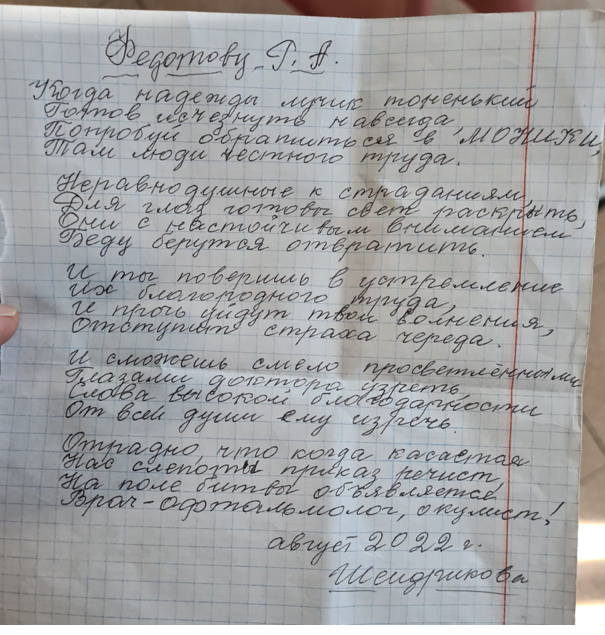 Федотову Г. А.
Когда надежды лучик тоненький
Готов исчезнуть навсегда,
Попробуй обратиться в "МОНИКИ",
Там люди честного труда.
Неравнодушные к страданиям,
Для глаз готовы свет раскрыть,
Они с настойчивым вниманием
Беду берутся отвратить.
И ты поверишь в устремление
Их благородного труда,
И прочь уйдут твои волнения,
Отступит страха череда.
И сможешь смело просветлёнными
Глазами доктора узреть,
Слова высокой благодарности
От всей души ему изречь.
Отрадно, что когда касается
Нас слепоты приказ речист,
На поле битвы объявляется
Врач-офтальмолог, окулист!
август 2022 г.
Шендрикова